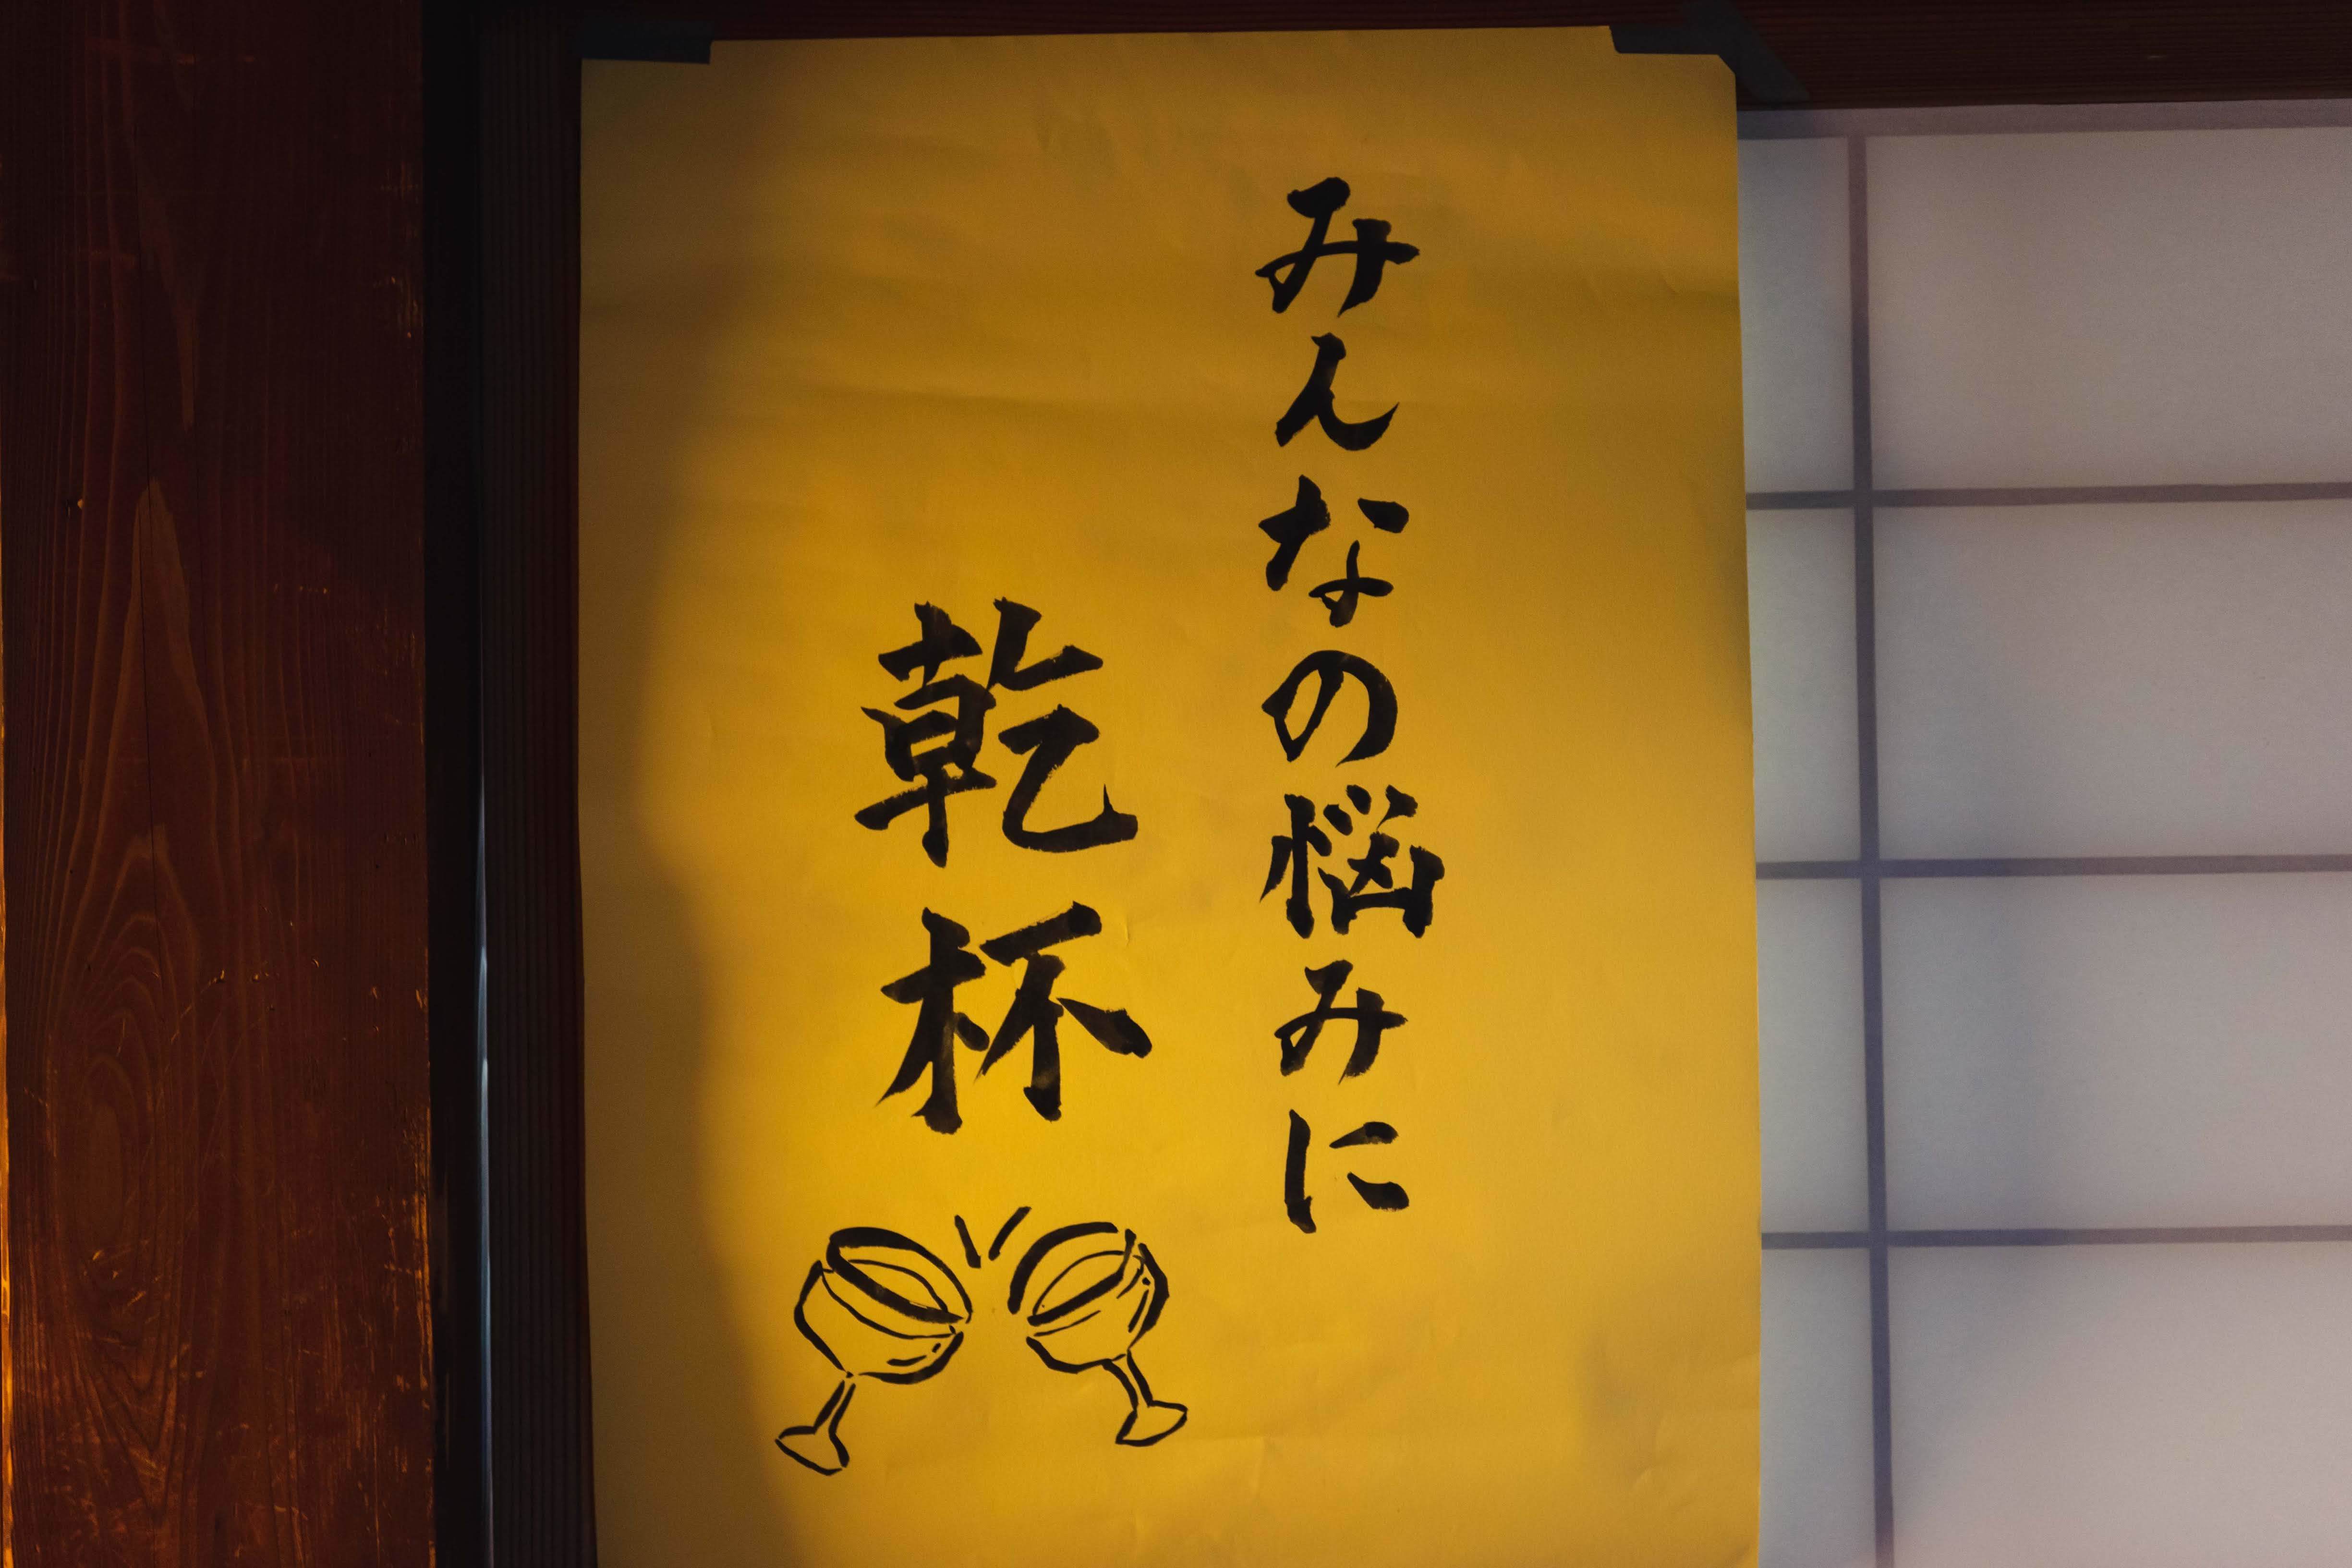 みんなの悩みに
乾杯